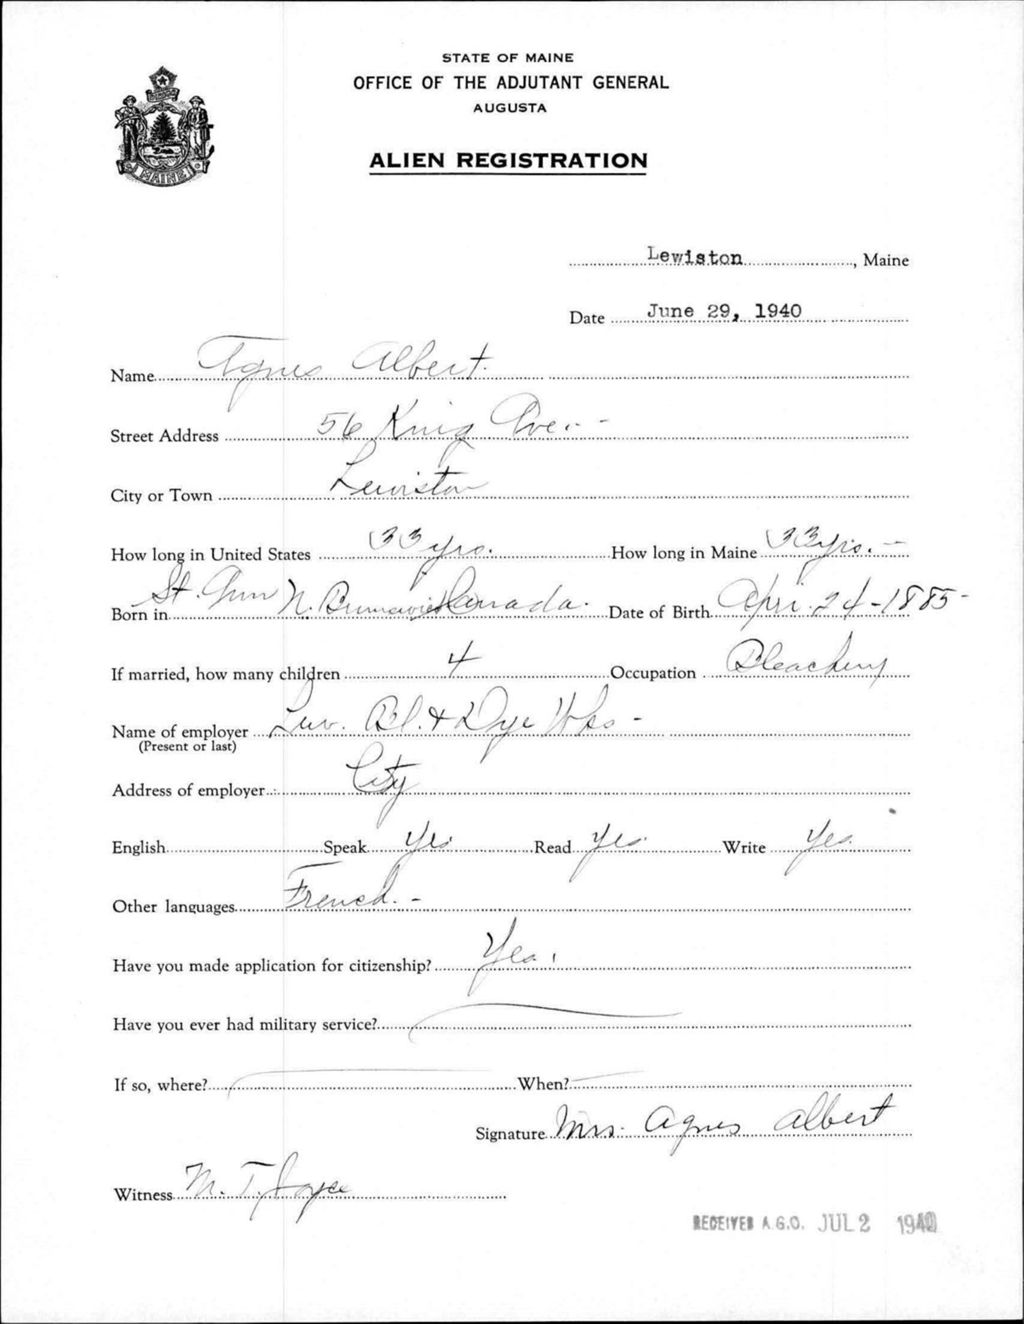 STATE OF MAINE
OFFICE OF THE ADJUTANT GENERAL
AUGUSTA
ALIEN REGISTRATION
MAINE
Lewiston, Maine
Date June 29, 1940
Name Agnes Albert
Street Address 56 King Ave.
City or Town Lewiston
How long in United States 33 yrs. How long in Maine 33 yrs.
Born in St. Ann N. Brunswick Canada. Date of Birth Apri. 24-1885-
If married, how many children 4 Occupation Bleachery
Name of employer Lew. Bl. & Dye Wks -
(Present or last)
Address of employer City
English Speak Yes Read Yes Write Yes
Other languages French. -
Have you made application for citizenship? Yes.
Have you ever had military service?
If so, where? When?
Signature Mrs. Agnes Albert
Witness M. T. Joyce
RECEIVED A.G.O. JUL 2 1940